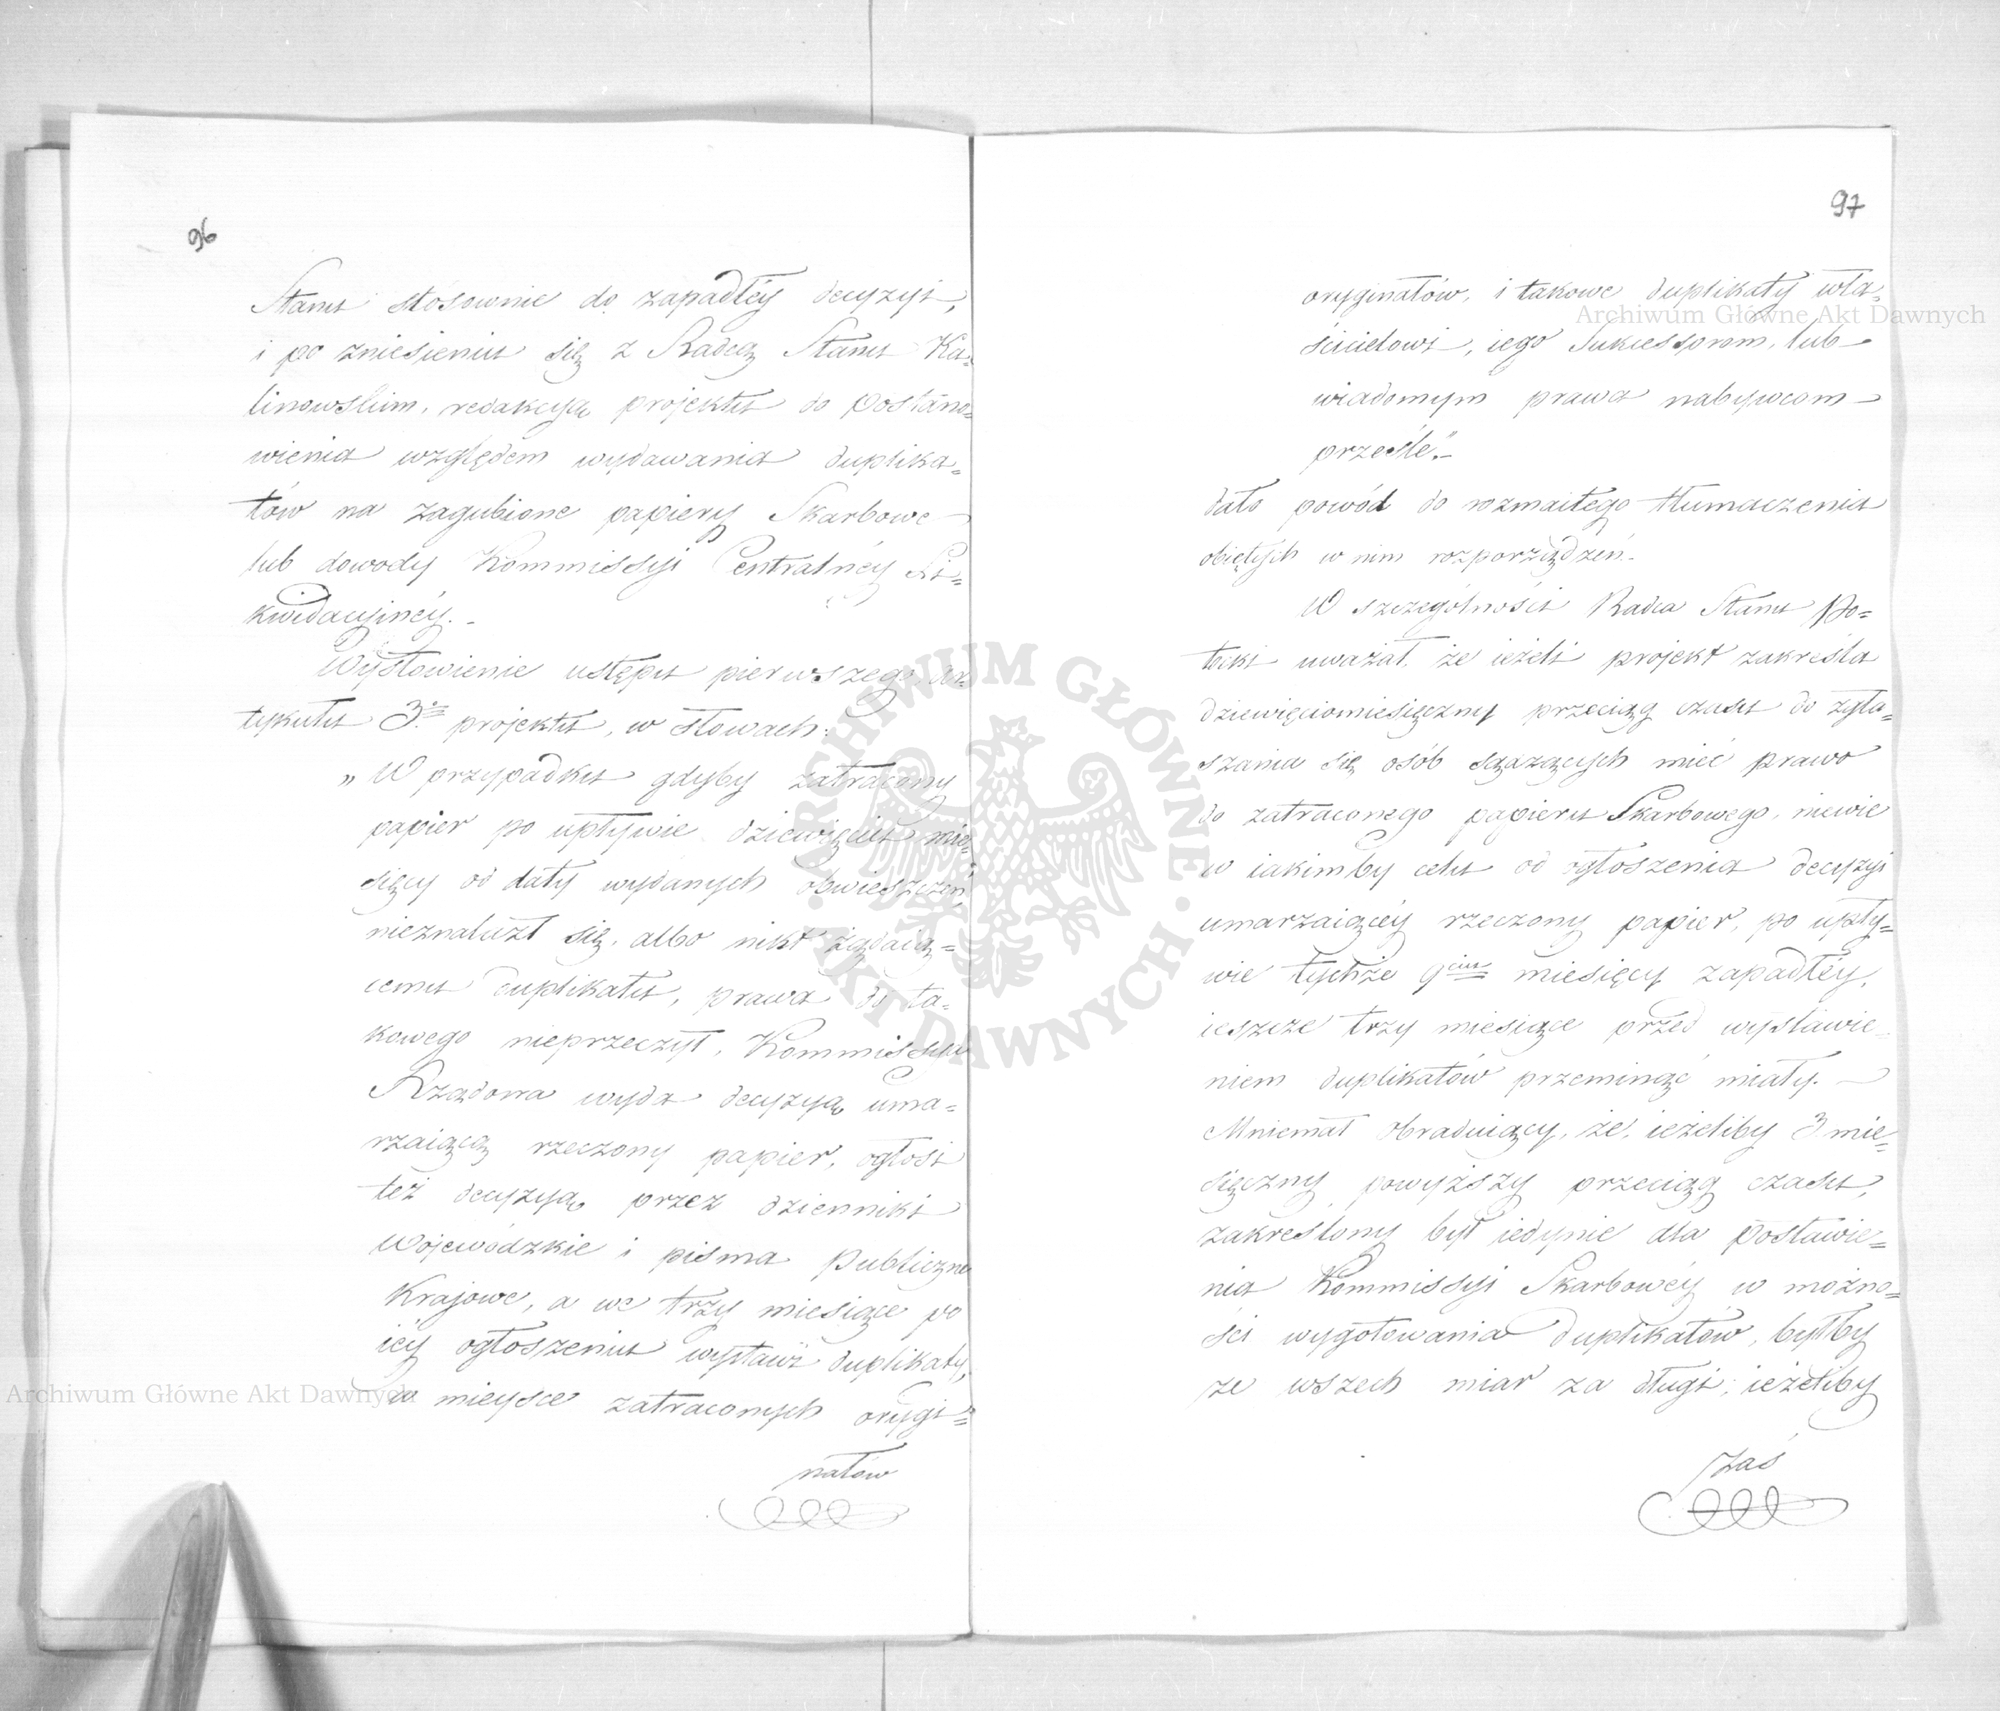 96
Stanu stosownie do zapadłéy decyzyi,
i po zniesieniu się z Radcą Stanu Ka=
linowskim, redakcyą projektu do postano=
wienia względem wydawania duplika=
tów na zagubione papiery Skarbowe
lub dowody Kommissyi Centralnéy Li=
kwidacyinéy.
Wysłowienie ustępu pierwszego ar=
tykułu 3. projektu, w słowach:
„W przypadku gdyby zatracony
papier po upływie dziewięciu mie=
sięcy od daty wydanych obwieszczeń,
nieznalazł się, albo nikt żądaią=
cemu duplikatu, prawa do ta=
kowego nieprzeczył, Kommissya
Rządowa wyda decyzyą uma=
rzaiącą rzeczony papier, ogłosi
też decyzyą przez dzienniki
Wojewódzkie i pisma publiczne
Krajowe, a we trzy miesiące po
iéy ogłoszeniu wystawi duplikaty,
w mieysce zatraconych orygi=
nałów
97
oryginałów, i takowe duplikaty wła=
ścicielowi, iego Sukcessorom, lub
wiadomym prawa nabywcom
prześle".
dało powód do rozmaitego tłumaczenia
obiętych w nim rozporządzeń.
W szczególności Radca Stanu Po=
tocki uważał, że ieżeli projekt zakreśla
dziewięciomiesięczny przeciąg czasu do zgła=
szania się osób sądzących mieć prawo
do zatraconego papieru Skarbowego, niewie
w iakimby celu od ogłoszenia decyzyi
umarzaiącéy rzeczony papier, po upły=
wie tychże 9ciu miesięcy zapadłéy,
ieszcze trzy miesiące przed wystawie
niem duplikatów przeminąć miały.
Mniemał obraduiący, że, ieżeliby 3 mie=
sięczny powyższy przeciąg czasu,
zakreślony był iedynie dla postawie=
nia Kommissyi Skarbowéy w możno=
ści wygotowania duplikatów, byłby
ze wszech miar za długi; ieżeliby
zaś
Archiwum Główne Akt Dawnych
Archiwum Główne Akt Dawnych
ARCHIWUM GŁÓWNE · AKT DAWNYCH ·